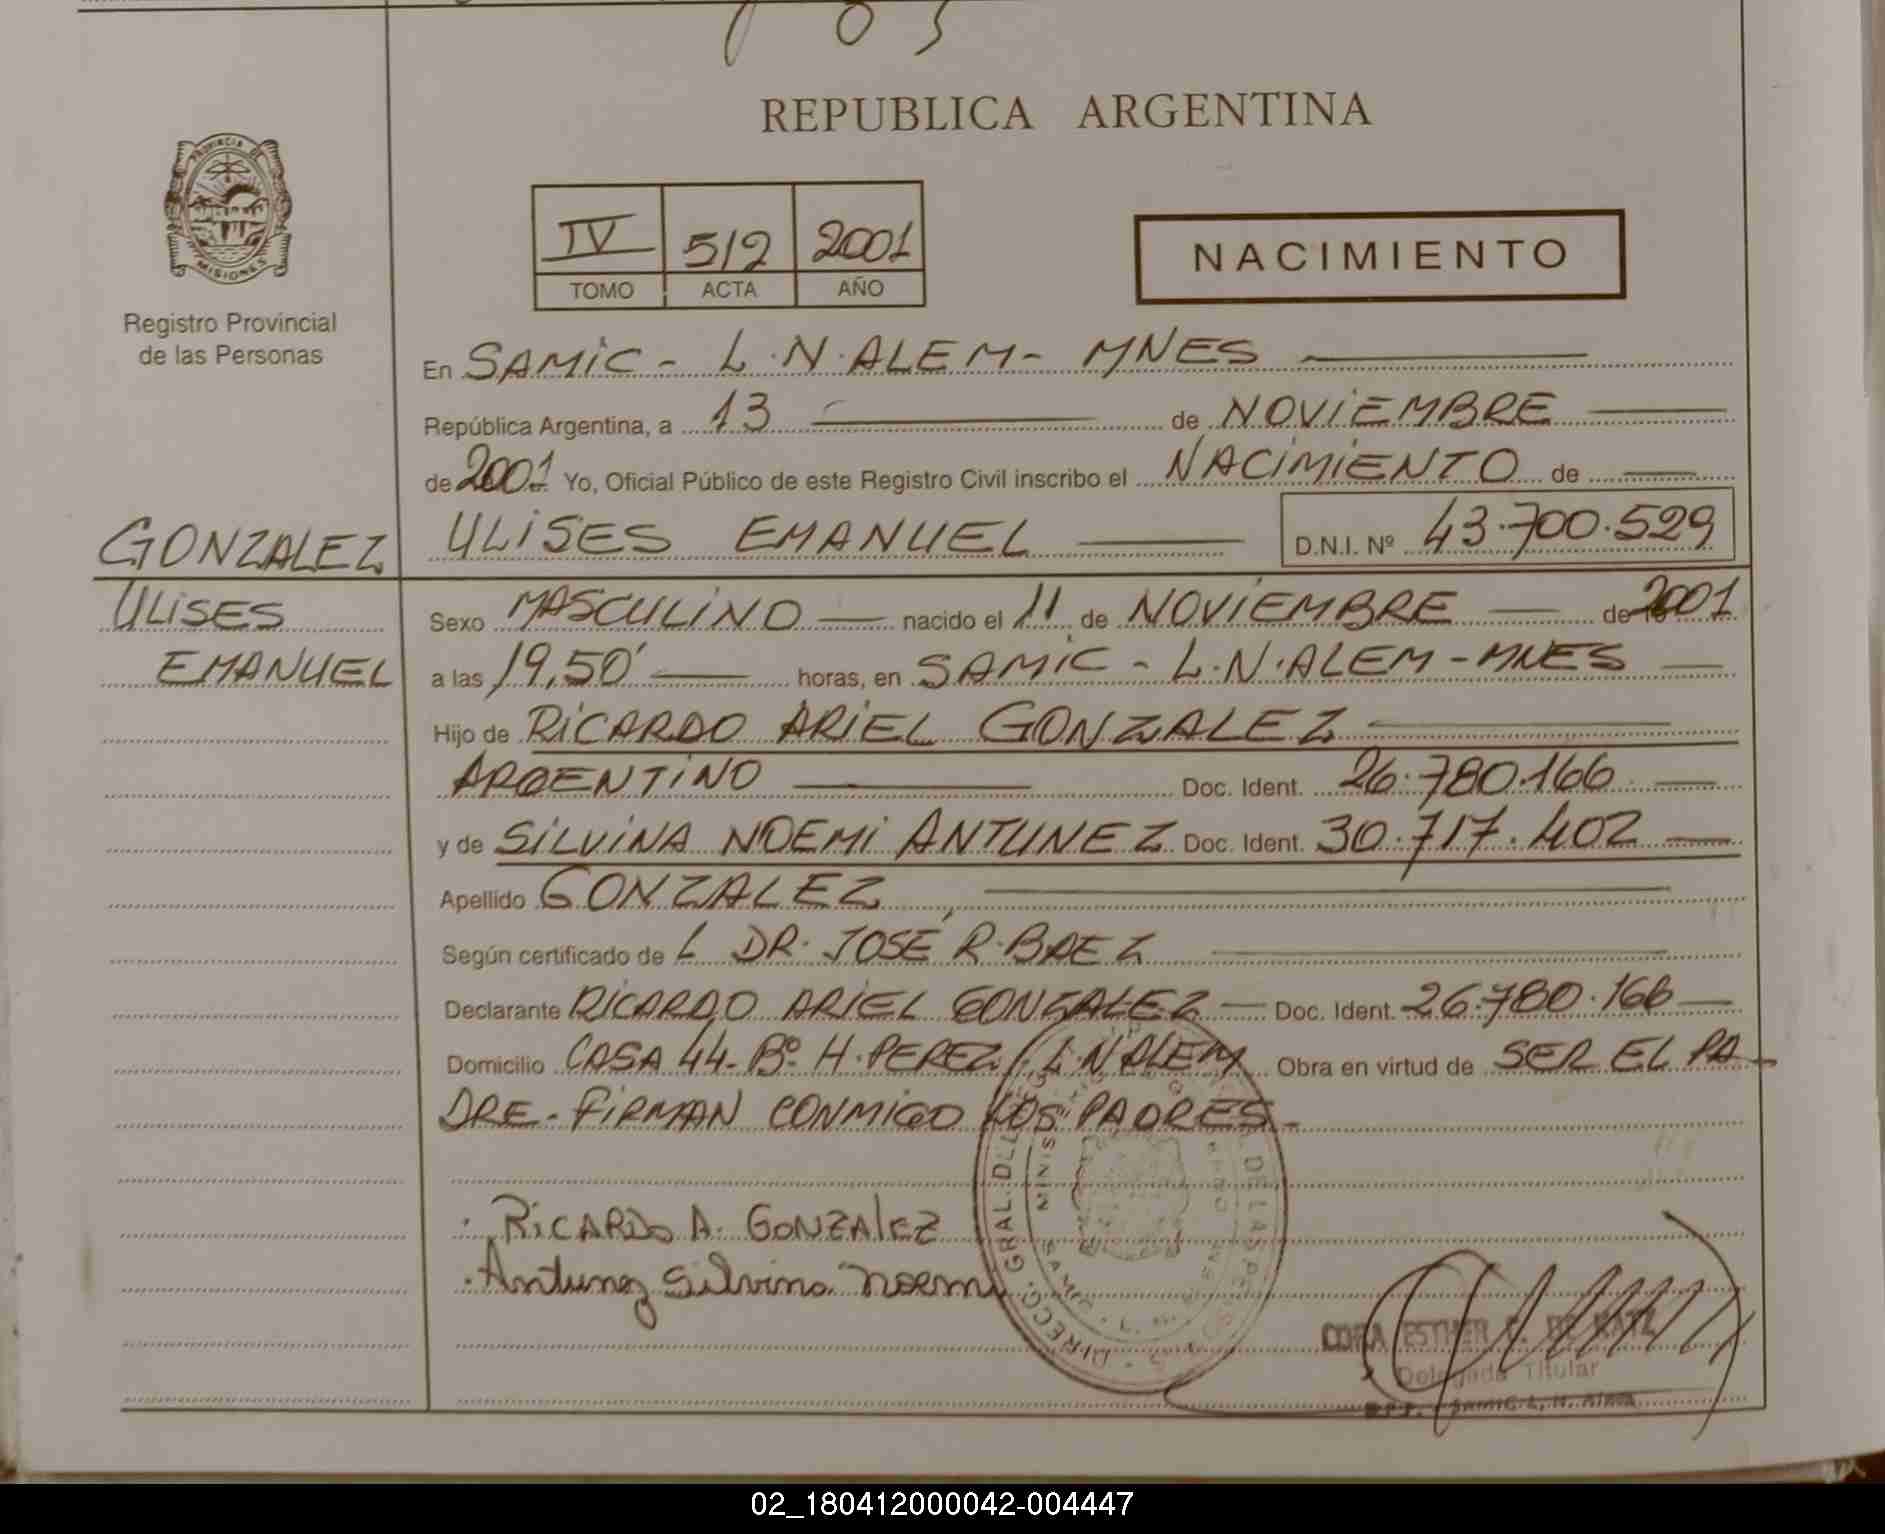 REPUBLICA ARGENTINA
PROVINCIA DE
MISIONES
Registro Provincial
de las Personas
IV 512 2001
TOMO ACTA AÑO
NACIMIENTO
En SAMIC - L.N. ALEM - MNES
República Argentina, a 13 de NOVIEMBRE
de 2001 Yo, Oficial Público de este Registro Civil inscribo el NACIMIENTO de
GONZALEZ ULISES EMANUEL D.N.I. Nº 43.700.529
ULISES
EMANUEL
Sexo MASCULINO nacido el 11 de NOVIEMBRE de 2001
a las 19,50' horas, en SAMIC - L.N. ALEM - MNES
Hijo de RICARDO ARIEL GONZALEZ
ARGENTINO Doc. Ident. 26.780.166
y de SILVINA NOEMI ANTUNEZ Doc. Ident. 30.717.402
Apellido GONZALEZ
Según certificado de L DR. JOSÉ R. BAEZ
Declarante RICARDO ARIEL GONZALEZ Doc. Ident. 26.780.166
Domicilio CASA 44 - Bº H. PEREZ L.N ALEM Obra en virtud de SER EL PA-
DRE - FIRMAN CONMIGO LOS PADRES -
RICARDO A. GONZALEZ
Antunez Silvina Noemi
CORA ESTHER C. DE KATZ
Delegada Titular
SAMIC L. N. Alem
02_180412000042-004447